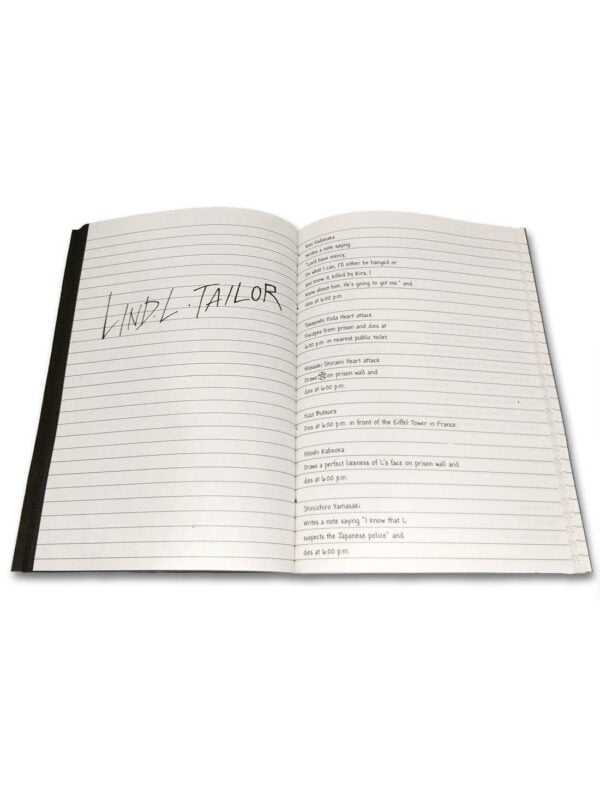 LIND.L.TAILOR
Kiin Tadanaka
Writes a note saying
"Lord have mercy,
Do what I can, I'll either be hanged or
you know it, killed by Kira, I
know about him. He's going to get me." and
dies at 6:00 p.m.
Takeyoshi Yoda Heart attack
Escapes from prison and dies at
6:00 p.m. in nearest public toilet.
Masaaki Shirami Heart attack
Draws on prison wall and
dies at 6:00 p.m.
Yuzo Butsura
Dies at 6:00 p.m. in front of the Eiffel Tower in France.
Hitoshi Kabeoka
Draws a perfect likeness of L's face on prison wall and
dies at 6:00 p.m.
Shiniichiro Yamasaki
Writes a note saying "I know that L
suspects the Japanese police" and
dies at 6:00 p.m.